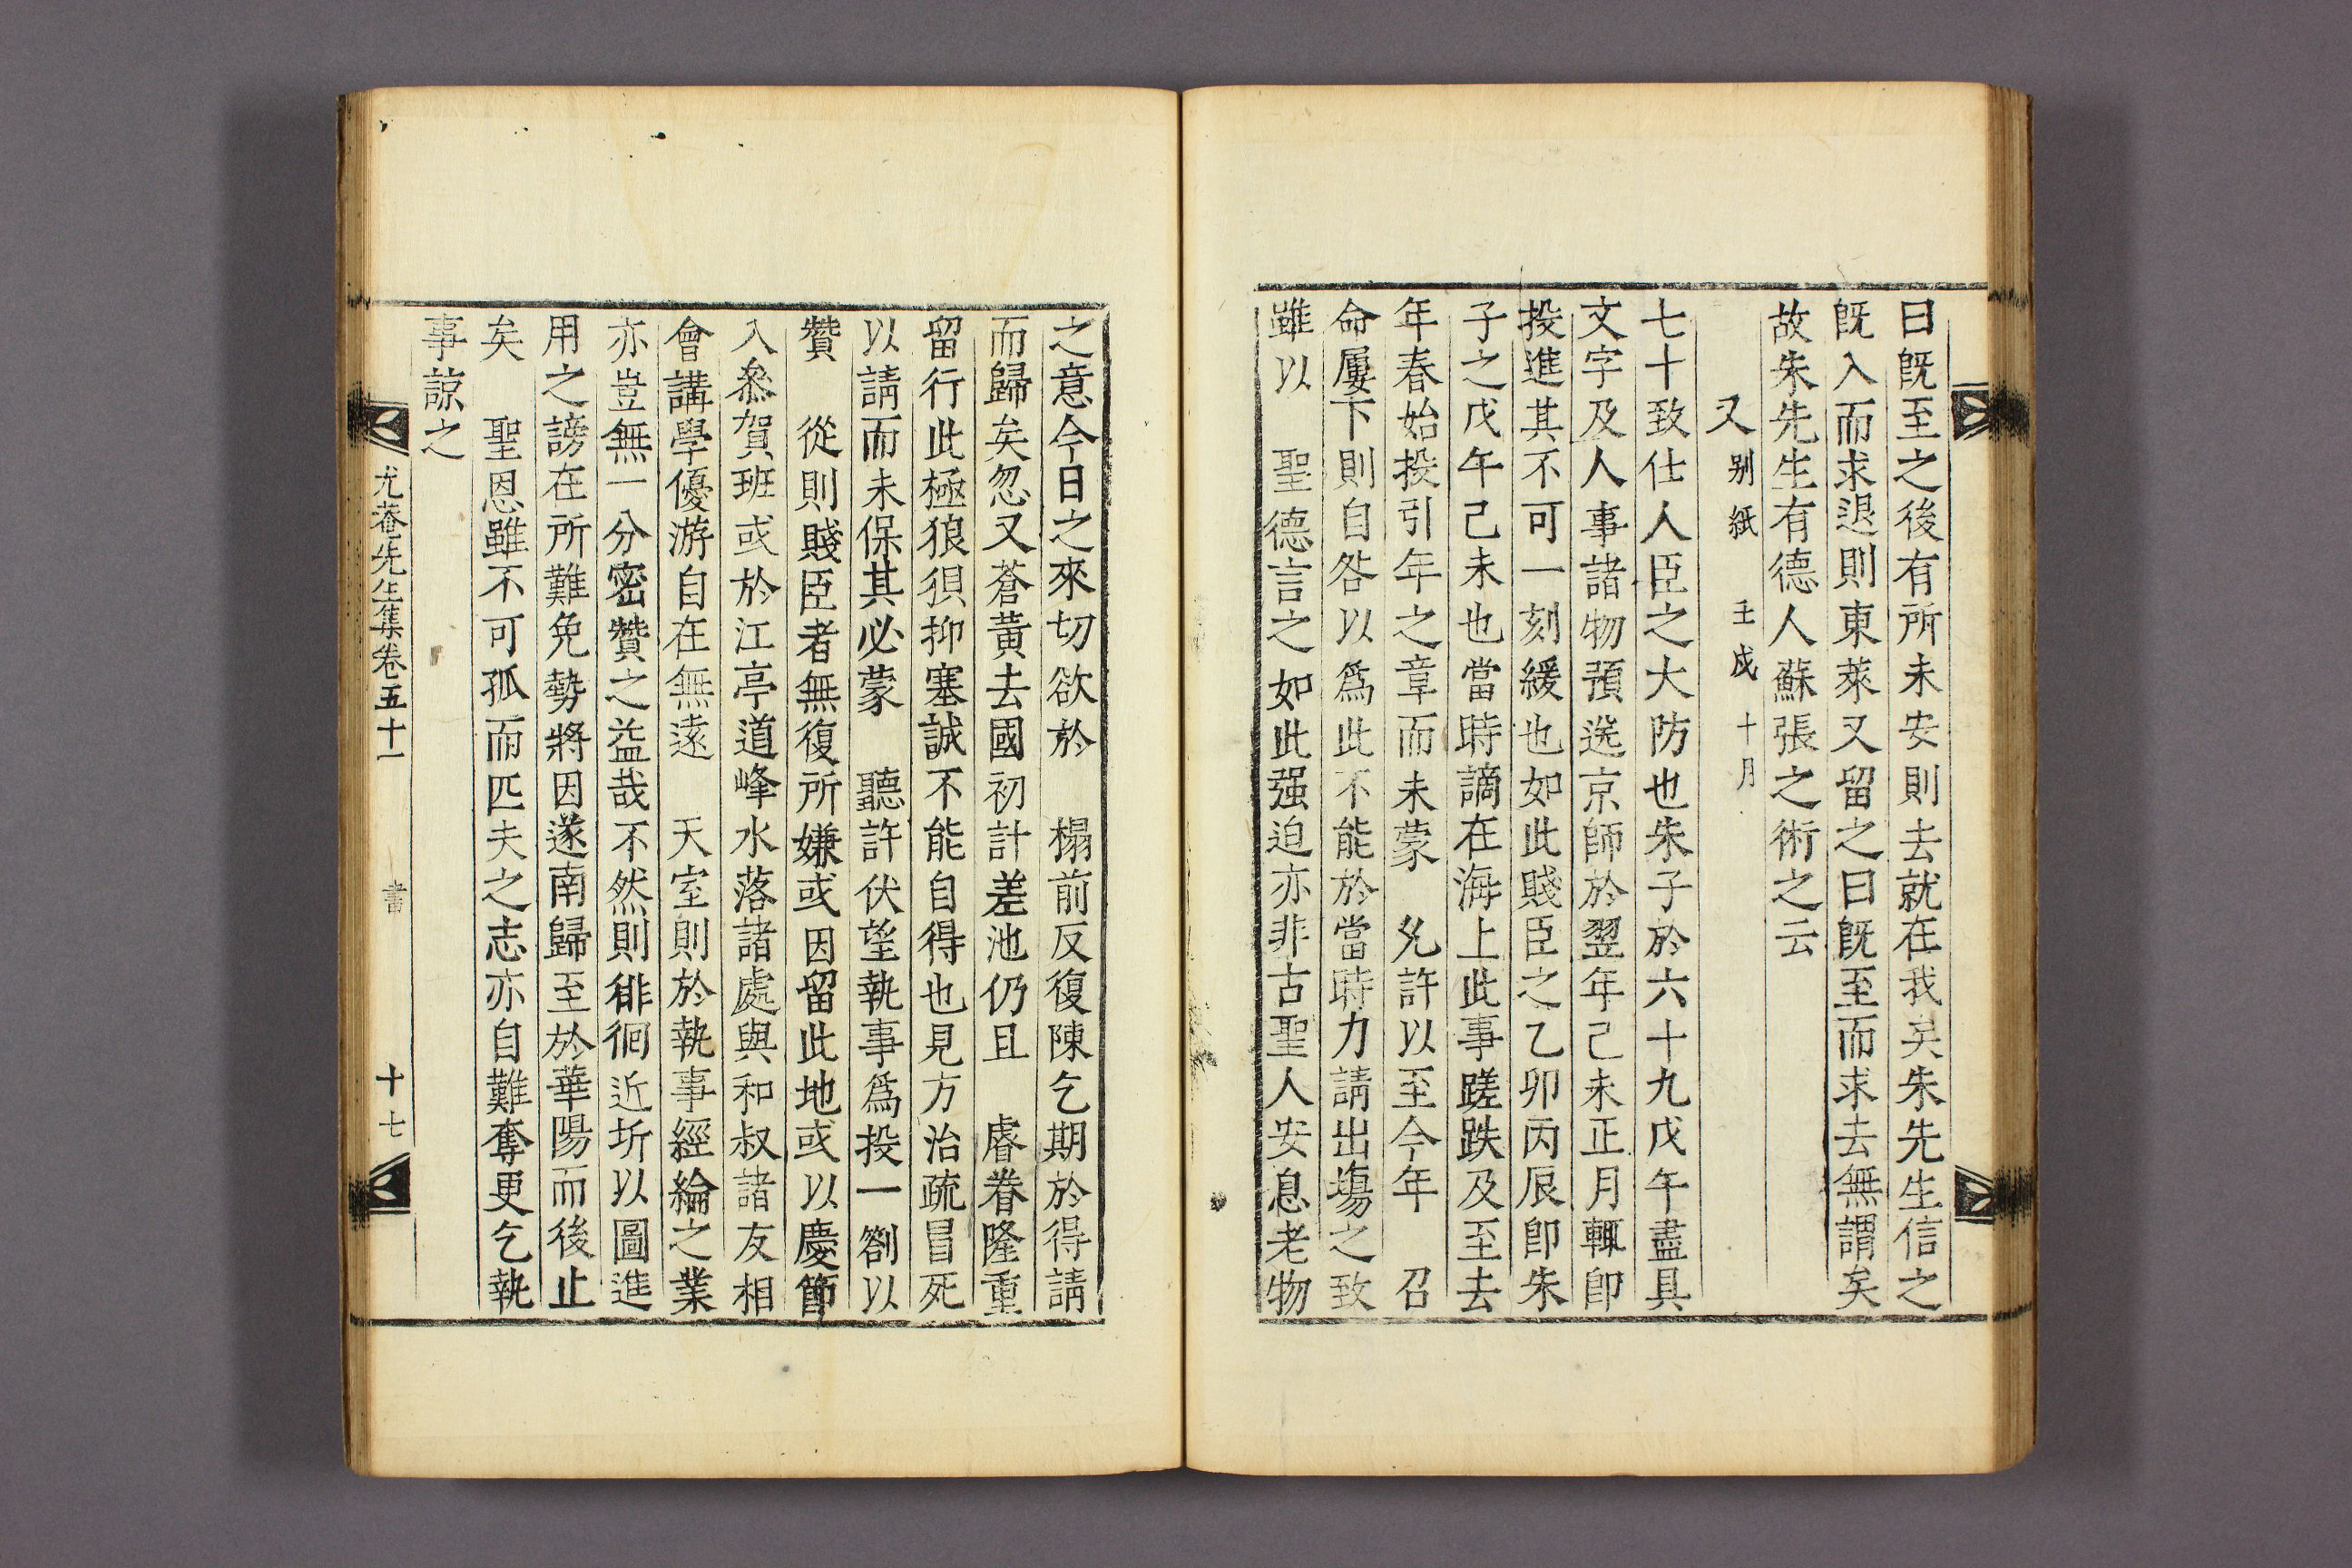 曰旣至之後有所未安則去就在我矣朱先生信之
旣入而求退則東萊又留之曰旣至而求去無謂矣
故朱先生有德人蘇張之術之云
又 别紙 壬戌 十月
七十致仕人臣之大防也朱子於六十九戊午盡具
文字及人事諸物預送京師於翌年己未正月輒卽
投進其不可一刻緩也如此賤臣之乙卯丙辰卽朱
子之戊午己未也當時謫在海上此事蹉跌及至去
年春始投引年之章而未蒙 允許以至今年 召
命屢下則自咎以爲此不能於當時力請出塲之致
雖以 聖德言之如此强迫亦非古聖人安息老物
之意今日之來切欲於 榻前反復陳乞期於得請
而歸矣忽又蒼黃去國初計差池仍且 睿眷隆重
留行此極狼狽抑塞誠不能自得也見方治疏冒死
以請而未保其必蒙 聽許伏望執事爲投一劄以
贊 從則賤臣者無復所嫌或因留此地或以慶節
入叅賀班或於江亭道峰水落諸處與和叔諸友相
會講學優游自在無遠 天室則於執事經綸之業
亦豈無一分密贊之益哉不然則徘徊近圻以圖進
用之謗在所難免勢將因遂南歸至於華陽而後止
矣 聖恩雖不可孤而匹夫之志亦自難奪更乞執
事諒之
尤菴先生集卷五十一 書 十七